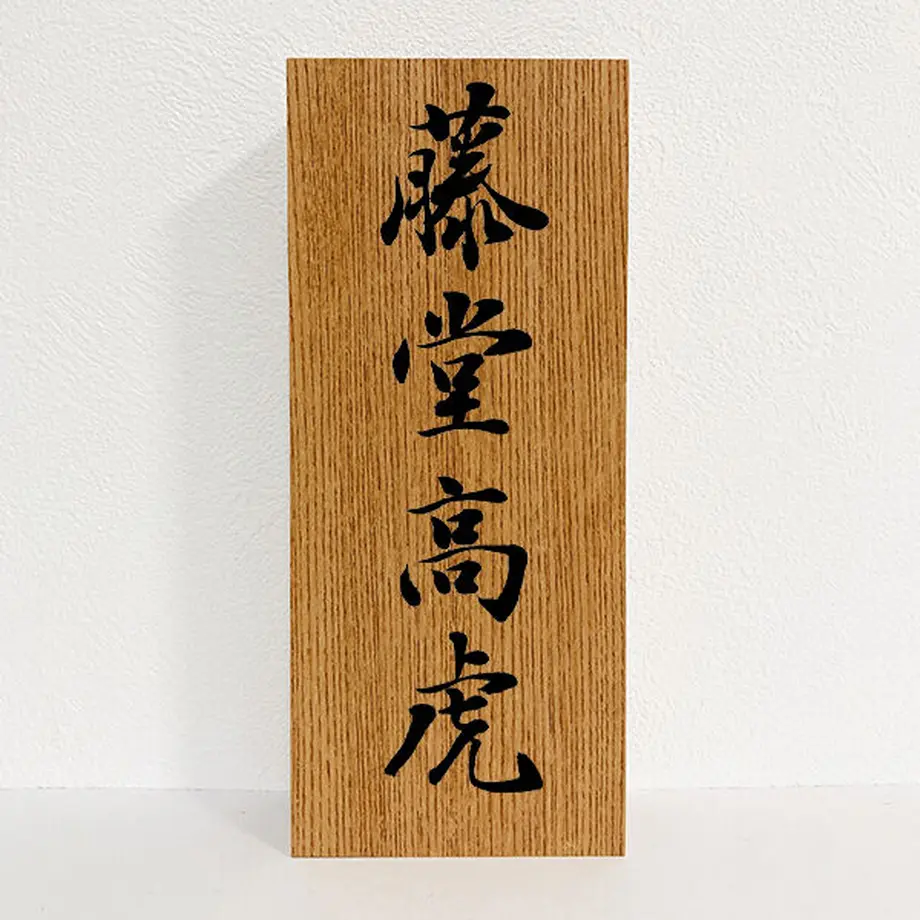 藤堂高虎